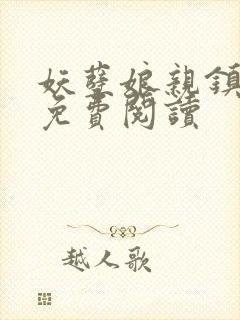 妖孽娘親鎮
免費閱讀
越人歌